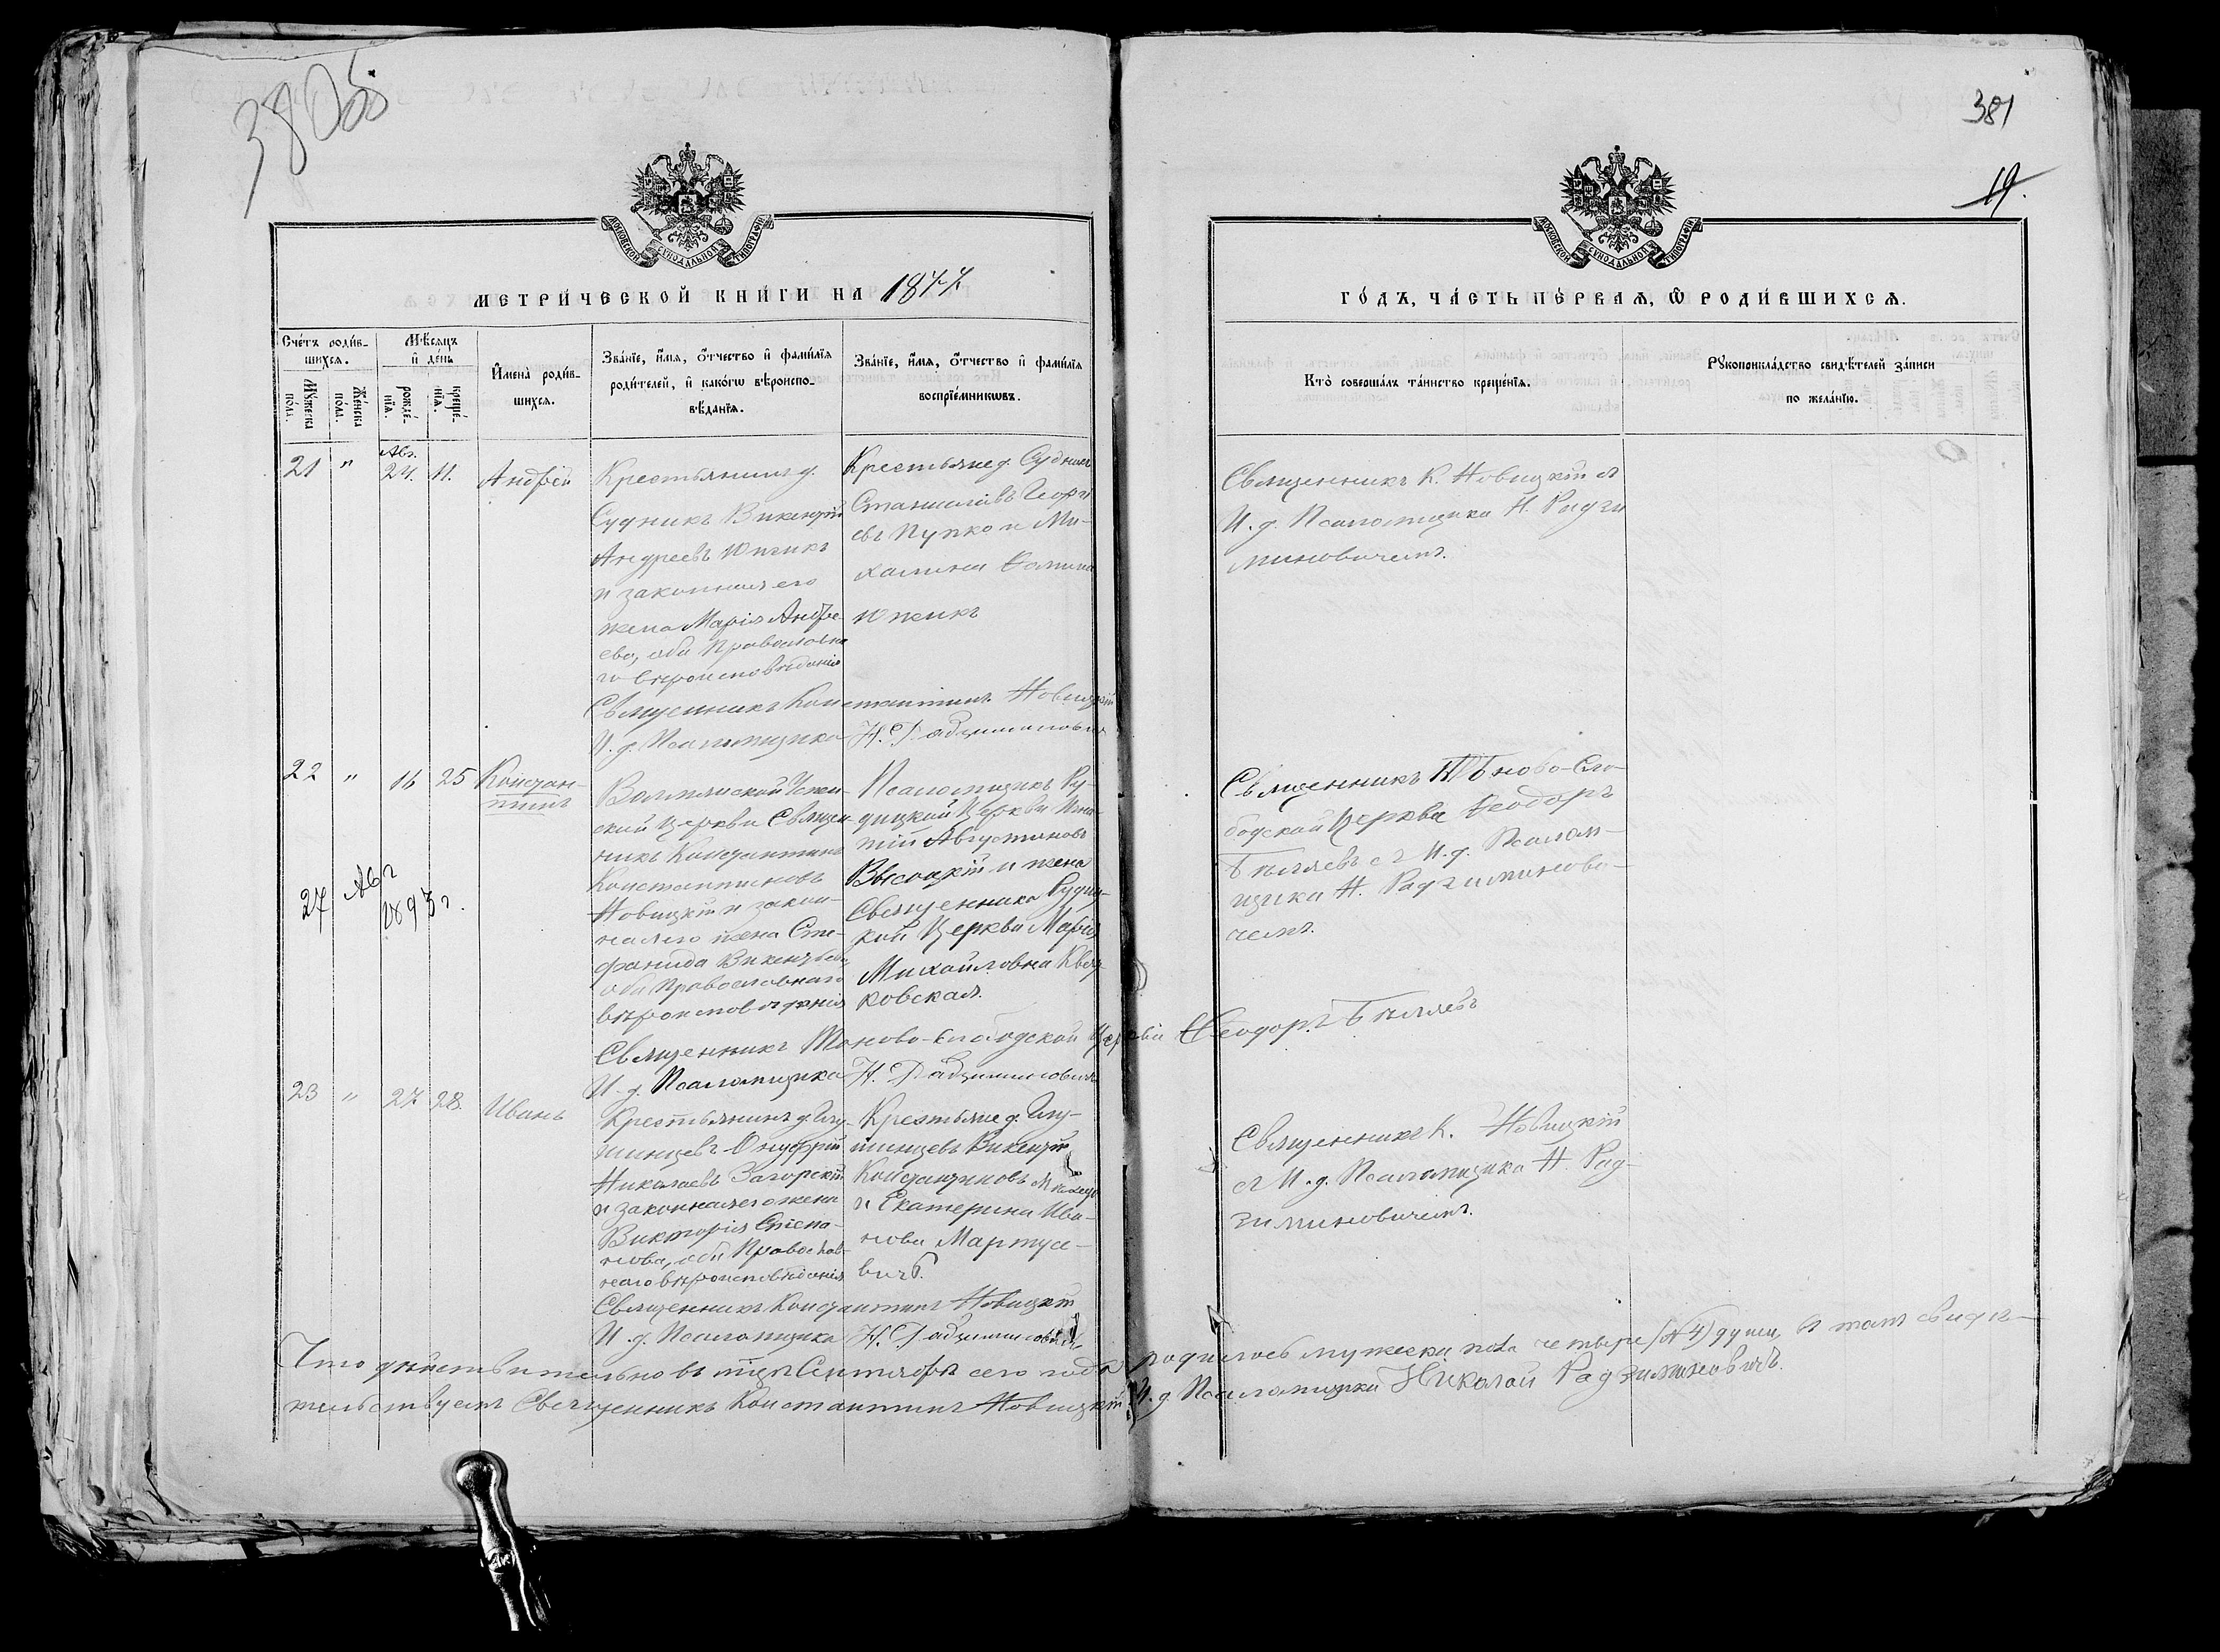 380об
381
19.
МОСКОВСКОЙ СУНОДАЛЬНОЙ ТИПОГРАФІИ
МОСКОВСКОЙ СУНОДАЛЬНОЙ ТИПОГРАФІИ
МЕТРИ́ЧЕСКОЙ КНИ́ГИ НА 1877
ГО́ДЪ, ЧА́СТЬ ПЕ́РВАЯ, Ѽ РОДИ́ВШИХСЯ.
Сче́тъ роди́в-
шихся.
Мѣ́сяцъ
и҆ де́нь
Мꙋ́жеска по́ла.
Же́нска по́ла.
рожде́-нїя.
креще́-нїя.
И҆мена̀ роди́в-
шихся.
Зва́нїе, и҆́мя, о҆́тчество и҆ фами́лїя
роди́телей, и҆ како́гѡ вѣроиспо-
вѣ́данїя.
Зва́нїе, и҆́мя, о҆́тчество и҆ фами́лїя
воспрїе́мникѡвъ.
Кто̀ соверша́лъ та́инство креще́нїя.
Рꙋкоприкла́дство свидѣ́телей за́писи
по жела́нїю.
21 " Авг. 24. 11. Андрей
Крестьянинъ д.
Судникъ Викентій
Андреевъ Юпикъ
и законная его
жена Марія Андре-
ева, оба Православна
го вѣроисповѣданія
Крестьяне д. Судникъ
Станиславъ Георгі
евъ Пупко и Ми-
халина Фомина
Священникъ К. Новицкій съ
И. д. Псаломщика Н. Радзи
миновичемъ.
Священникъ Константинъ Новицкій
И. д. Псаломщика Н. Радзиминовичъ
22 " 16 25 Констан-
тинъ
Священникъ Константинъ
Константиновъ
Новицкій и закон-
ная его жена Сте-
фанида Викентьева
оба Православнаго
вѣроисповѣданія
Псаломщикъ Ру-
дицкой Церкви Игна-
тій Августиновъ
Высоцкій и жена
Священника Рудиц-
кой Церкви Марія
Михайловна
ковская.
бодской Церкви Феодоръ
Бѣляевъ съ И. д. Псалом-
щика Н. Радзиминови-
чемъ.
27 Авг
1893 г.
Феодоръ Бѣляевъ
И. д. Псаломщика Н. Радзиминовичъ
23 " 27 28. Иванъ
Крестьянинъ д. Глу-
шинцевъ Онуфрій
Николаевъ Загорскій
и законная его жена
Викторія Степа-
нова, оба Православ-
наго вѣроисповѣданія
Крестьяне д. Глу-
шинцевъ Викентій
Константиновъ
и Екатерина Ива-
нова Мартусе-
вичъ.
Священникъ К. Новицкій
съ И. д. Псаломщика Н. Рад-
зиминовичемъ.
Священникъ Константинъ Новицкій
И. д. Псаломщика Н. Радзиминовичъ
Что дѣйствительно въ м-цѣ Сентябрѣ сего года родилось мужеска пола четыре (№ 4) души, въ томъ свидѣ-
тельствуетъ Священникъ Константинъ Новицкій И. д. Псаломщика Николай Радзиминовичъ.